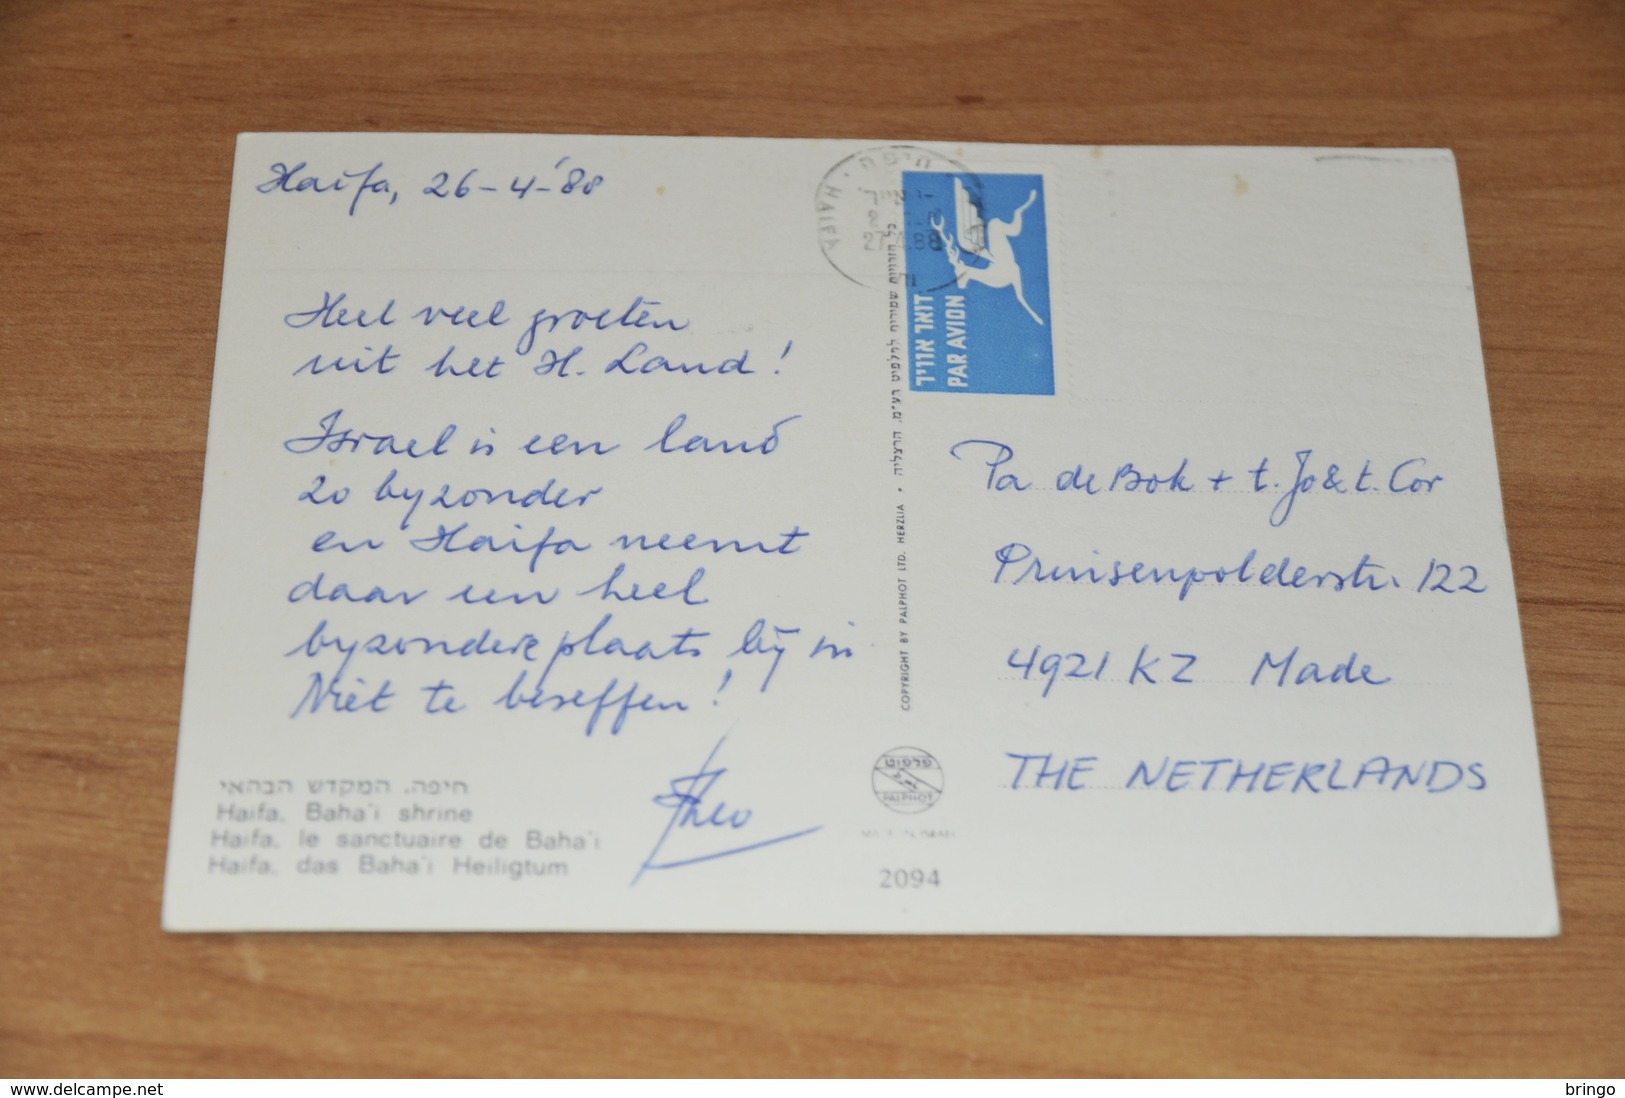 Haifa, 26-4-'88
Heel veel groeten
uit het H. Land!
Israel is een land
zo byzonder
en Haifa neemt
daar een heel
byzondere plaats bij in
Niet te beseffen!
Theo
חיפה. המקדש הבהאי
Haifa. Baha'i shrine
Haifa. le sanctuaire de Baha'i
Haifa. das Baha'i Heiligtum
חיפה
HAIFA
27.4.88
דואר אוויר
PAR AVION
COPYRIGHT BY PALPHOT LTD. HERZLIA • כל הזכויות שמורות לפלפוט בע"מ. הרצליה
פלפוט
PALPHOT
2094
Pa de Bok + t. Jo & t. Cor
Prinsenpolderstr. 122
4921 KZ Made
THE NETHERLANDS
www.delcampe.net
bringo